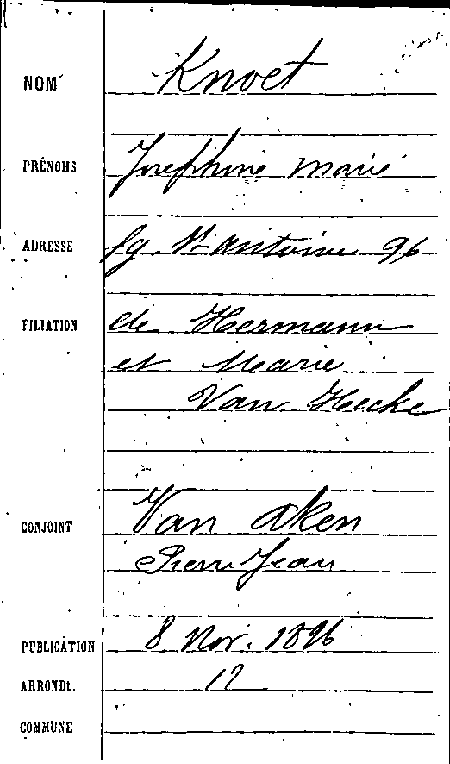 NOM Knoet
PRÉNOMS Josephine Marie
ADRESSE fg St Antoine 96
FILIATION de Hermann
et Marie
Van Hecke
CONJOINT Van Aken
Pierre Jean
PUBLICATION 8 Nov. 1896
ARRONDt. 12
COMMUNE